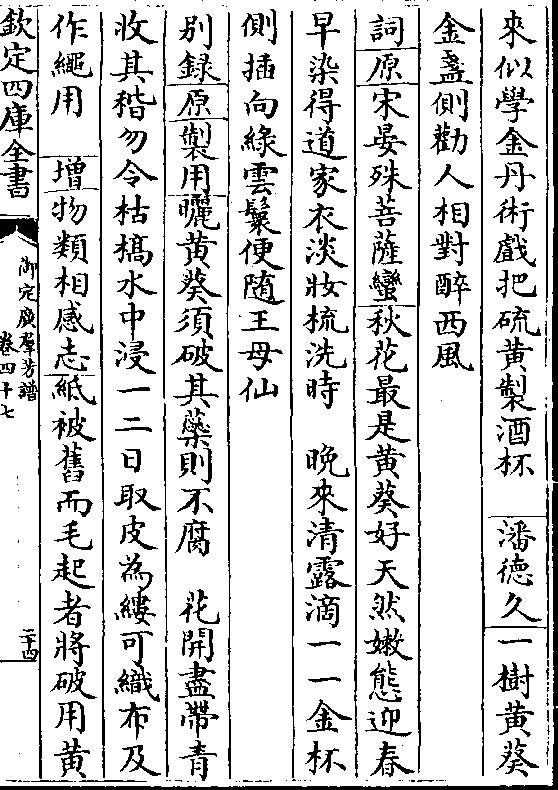 來似學金丹術戲把硫黄製酒杯 潘德久一樹黄葵
金盞側勸人相對醉西風
詞原宋晏殊菩薩蠻秋花最是黄葵好天然嫩態迎春
早染得道家衣淡妝梳洗時 晩來清露滴一一金杯
側插向綠雲鬟便隨王母仙
别録原製用曬黄葵須破其藥則不腐 花開盡帶青
收其稭勿令枯槁水中浸一二日取皮為縷可織布及
作繩用 增物類相感志紙被舊而毛起者將破用黄
欽定四庫全書
御定廣羣芳譜
卷四十七
二十四